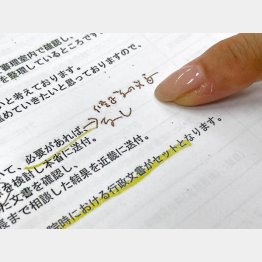 審理室内で確認し、
を整理しているところです。
と考えております。
めていきたいと思っておりますので、
なし
いて、必要があれば、
検討し本省に送付。
文書を確認し、
長まで相談した結果を近畿に送付。
時における行政文書がセットとなります。